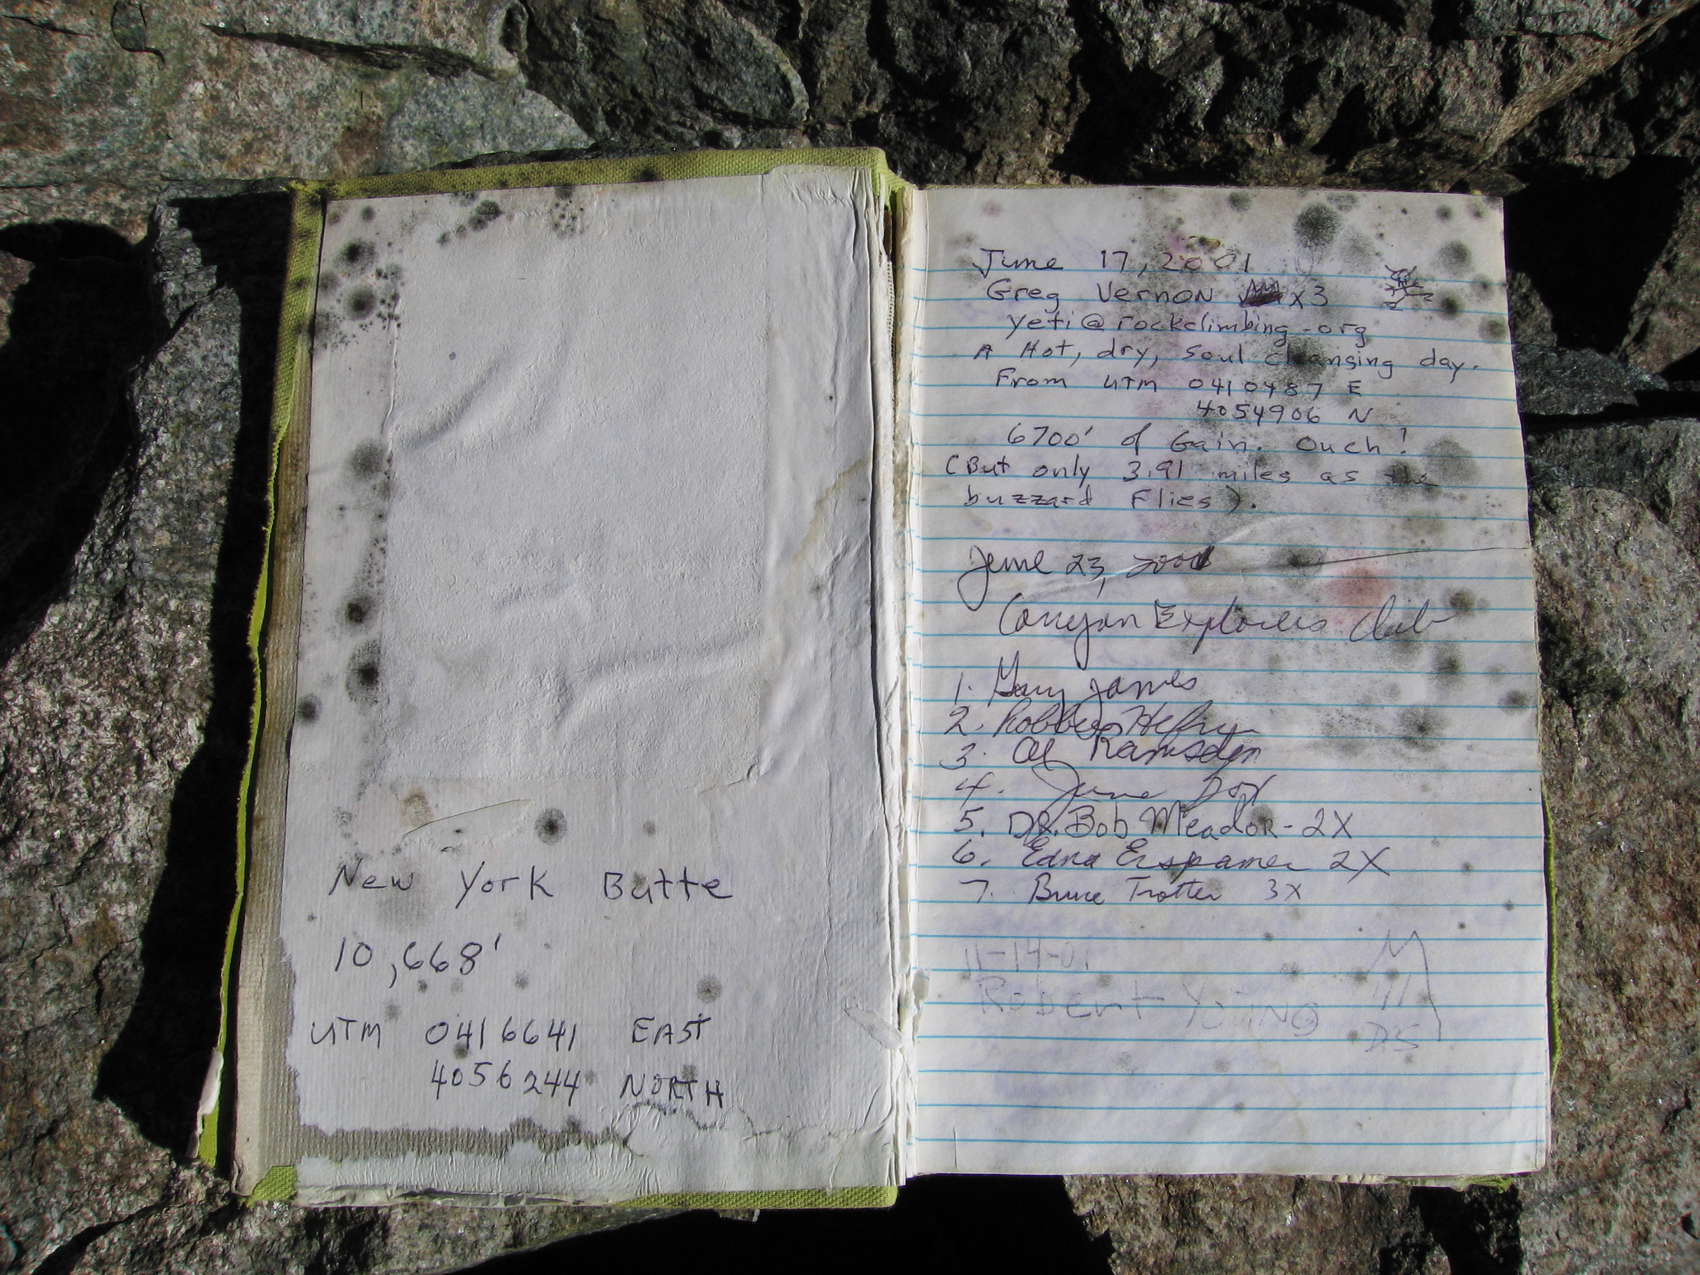 New York Butte
10,668'
UTM 0416641 EAST
4056244 NORTH
June 17, 2001
Greg Vernon x3
yeti@rockclimbing.org
A Hot, dry, soul cleansing day.
From UTM 0410487 E
4054906 N
6700' of Gain. Ouch!
(But only 3.91 miles as the
buzzard Flies).
June 23, 2001
Canyon Explorers Club
1. Gary James
2. Hefny
3. Al Ramsden
4. June Box
5. DR. Bob Meador - 2X
6. Edna Erspamer 2X
7. Bruce Trotter 3X
11-14-01
Robert Young